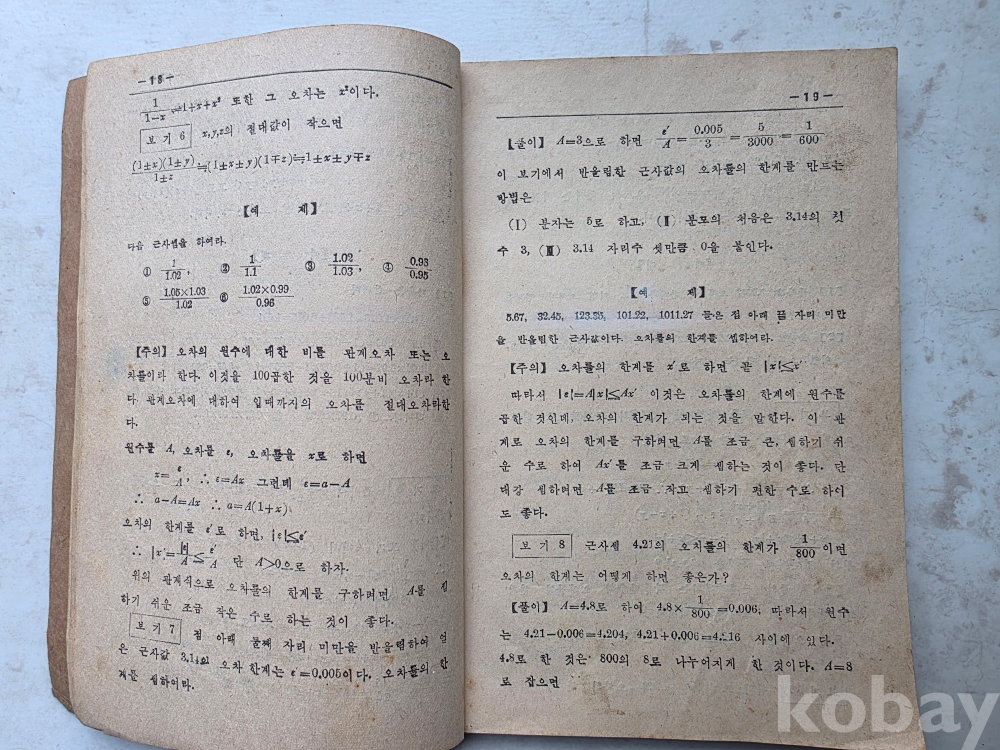 —18—
1/(1-x)≒1+x+x² 또한 그 오차는 x²이다.
보기 6 x,y,z의 절대값이 작으면
(1±x)(1±y)/(1±z)≒(1±x±y)(1∓z)≒1±x±y∓z
【예 제】
다음 근사셈을 하여라.
① 1/1.02, ② 1/1.1 ③ 1.02/1.03, ④ 0.93/0.95
⑤ 1.05×1.03/1.02 ⑥ 1.02×0.99/0.96
【주의】 오차의 원수에 대한 비를 관계오차 또는 오
차률이라 한다. 이것을 100곱한 것을 100분비 오차라 한
다 관계오차에 대하여 이때까지의 오차를 절대오차라한
다.
원수를 A, 오차를 e, 오차률을 x로 하면
x=e/A, ∴ e=Ax 그런데 e=a−A
∴ a−A=Ax ∴ a=A(1+x)
오차의 한계를 e′로 하면, |e|≦e′
∴ |x|=|e|/A≦e′/A 단 A>0으로 하자.
위의 관계식으로 오차률의 한계를 구하려면 A를 셈
하기 쉬운 조금 작은 수로 하는 것이 좋다.
보기 7 점 아래 둘째 자리 미만을 반올림하여 얻
은 근사값 3.14의 오차 한계는 e′=0.005이다. 오차률의 한
계를 셈하여라.
—19—
【풀이】 A=3으로 하면 e′/A=0.005/3=5/3000=1/600
이 보기에서 반올림한 근사값의 오차률의 한계를 만드는
방법은
(Ⅰ) 분자는 5로 하고, (Ⅱ) 분모의 처음은 3.14의 첫
수 3, (Ⅲ) 3.14 자리수 셋만큼 0을 붙인다.
【예 제】
5.67, 32.45, 123.35, 101.22, 1011.27 들은 점 아래 끝 자리 미만
을 반올림한 근사값이다. 오차률의 한계를 셈하여라.
【주의】 오차률의 한계를 x′로 하면 곧 |x|≦x′
따라서 |e|=A|x|≦Ax′ 이것은 오차률의 한계에 원수를
곱한 것인데, 오차의 한계가 되는 것을 말한다. 이 관
계로 오차의 한계를 구하려면 A를 조금 큰, 셈하기 쉬
운 수로 하여 Ax′를 조금 크게 셈하는 것이 좋다. 단
대강 셈하려면 A를 조금 작고 셈하기 편한 수로 하여
도 좋다.
보기 8 근사셈 4.21의 오차률의 한계가 1/800이면
오차의 한계는 어떻게 하면 좋은가?
【풀이】 A=4.8로 하여 4.8×1/800=0.006, 따라서 원수
는 4.21−0.006=4.204, 4.21+0.006=4.216 사이에 있다.
4.8로 한 것은 800의 8로 나누어지게 한 것이다. A=8
로 잡으면
kobay